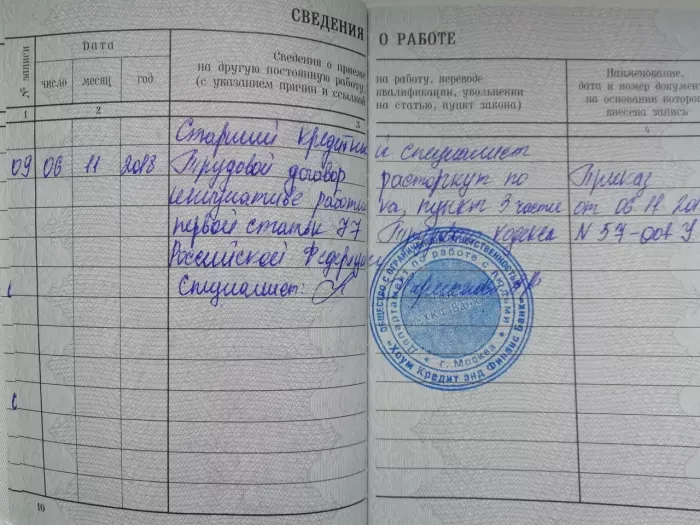 СВЕДЕНИЯ О РАБОТЕ
№ записи
Дата
число
месяц
год
Сведения о приеме на работу, переводе
на другую постоянную работу, квалификации, увольнении
(с указанием причин и ссылкой на статью, пункт закона)
Наименование,
дата и номер докумен
на основании которо
внесена запись
1
2
3
4
Старший кредитный специалист
09 06 11 2018 Трудовой договор расторгнут по Приказ
инициативе работника, пункт 3 части от 06.11.201
первой статьи 77 Трудового кодекса N 57-
Российской Федерации
Специалист:
ОБЩЕСТВО С ОГРАНИЧЕННОЙ ОТВЕТСТВЕННОСТЬЮ
«Хоум Кредит энд Финанс Банк»
Департамент по работе с людьми
г. Москва
«ХКФ БАНК»
10